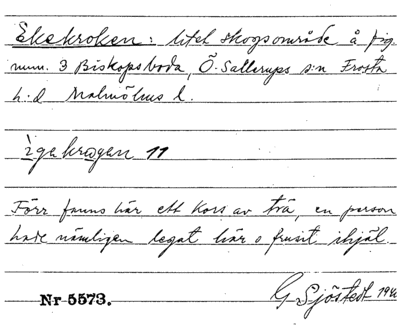 Ekekroken: litet skogsområde å fig.
num. 3 Biskopsboda, Ö. Sallerups s:n Frosta
h.d Malmöhus l.
ìgekrogen 11
Förr fanns här ett kors av trä, en person
hade nämligen legat här o frusit ihjäl.
Nr 5573. G Sjöstedt